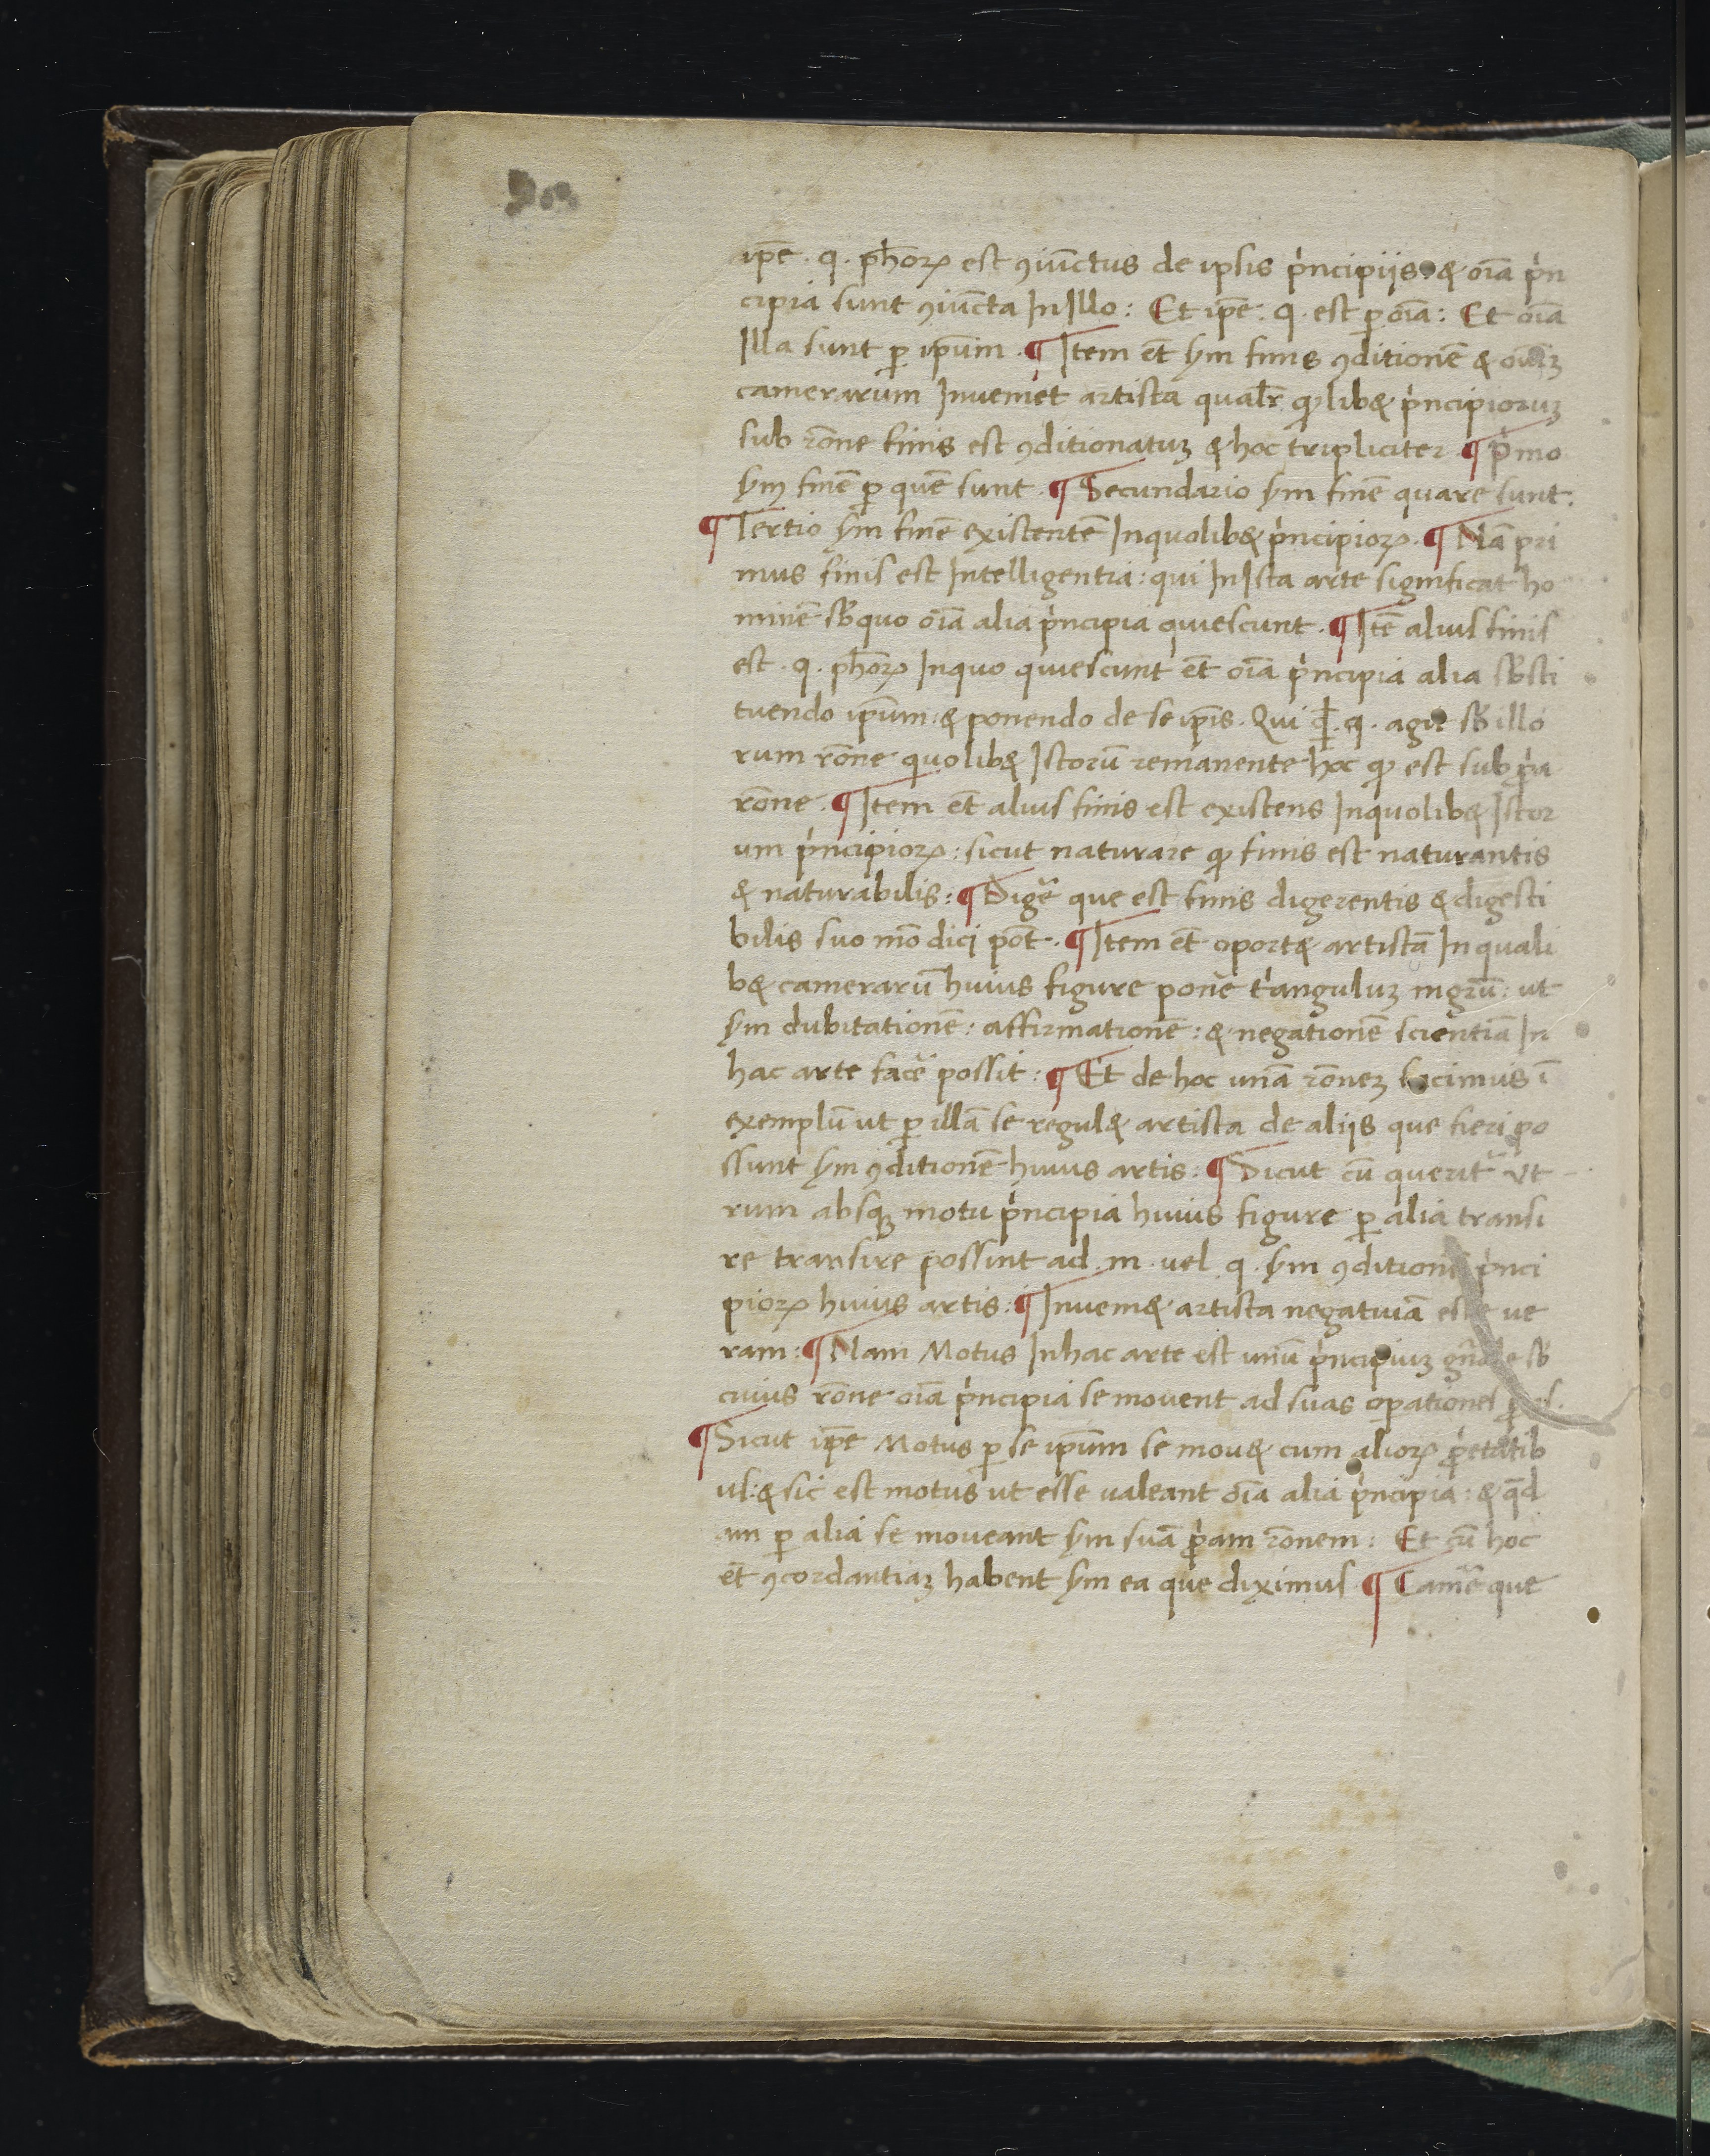 ip̄e · q · ph̄oꝝ est ꝯiūctus de ipsis p͛ncipijs · & oīa p͛n
cipia sunt ꝯiūcta In Illo : Et ip̄e : q · est ꝑ oīa : Et oīa
Illa sunt ꝑ ip̄um · ¶ Item et̄ ẜm finis ꝯditionē & oīuꝫ
camerarum Inueniet artista qualr̄ quodlib& p͛ncipioruꝫ
sub rōne finis est ꝯditionatuꝫ & hoc tripliciter · ¶ P͛mo
ẜm finē ꝑ quē sunt · ¶ Secundario ẜm finē quare sunt :
¶ Tertio ẜm finē existentē Inquolib& p͛ncipioꝝ · ¶ Nā pri
mus finis est Intelligentia : qui In Ista arte significat ho
minē sƀ quo oīa alia p͛ncipia quiescunt · ¶ Itē alius finis
est · q · ph̄oꝝ Inquo quiescunt et̄ oīa p͛ncipia alia sƀsti
tuendo ip̄um : & ponendo de se ip̄is · Qui · q · agit sƀ illo
rum rōne quolib& Istorū remanente hoc ꝙ est sub ꝓp͛a
rōne · ¶ Item et̄ alius finis est existens Inquolib& Istor
um p͛ncipioꝝ : sicut naturare ꝙ finis est naturantis
& naturabilis : ¶ Digē͛ que est finis digerentis & digesti
bilis suo mō dici pōt · ¶ Item et̄ oport& artistā In quali
b& camerarū huius figure ponē͛ t͛angulum nigrū : ut
ẜm dubitationē : affirmationē : & negationē scientiā In
hac arte facē͛ possit : ¶ Et de hoc unā rōneꝫ facimus ī
exemplū ut ꝑ illā se regul& artista de alijs que fieri po
ssunt ẜm ꝯditionē huius artis : ¶ Sicut cū querit᷑ Vt
rum absqꝫ motu p͛ncipia huius figure ꝑ alia transi
re transire possint ad · m · uel · q · ẜm ꝯditionē p͛nci
pioꝝ huius artis : ¶ Inueni& artista negatiuā esse ue
ram : ¶ Nam Motus Inhac arte est unū p͛ncipiuꝫ gn̄ale sƀ
cuius rōne oīa p͛ncipia se mouent ad suas oꝑationes
¶ Sicut ip̄e Motus ꝑ se ip̄um se mou& cum alioꝝ ꝓp͛etatib
us : & sic est motus ut esse ualeant oīa alia p͛ncipia : & q̄d
am ꝑ alia se moueant ẜm suā ꝓp͛am rōnem : Et cū hoc
et̄ ꝯcordantiaꝫ habent ẜm ea que diximus · ¶ Camē͛ que